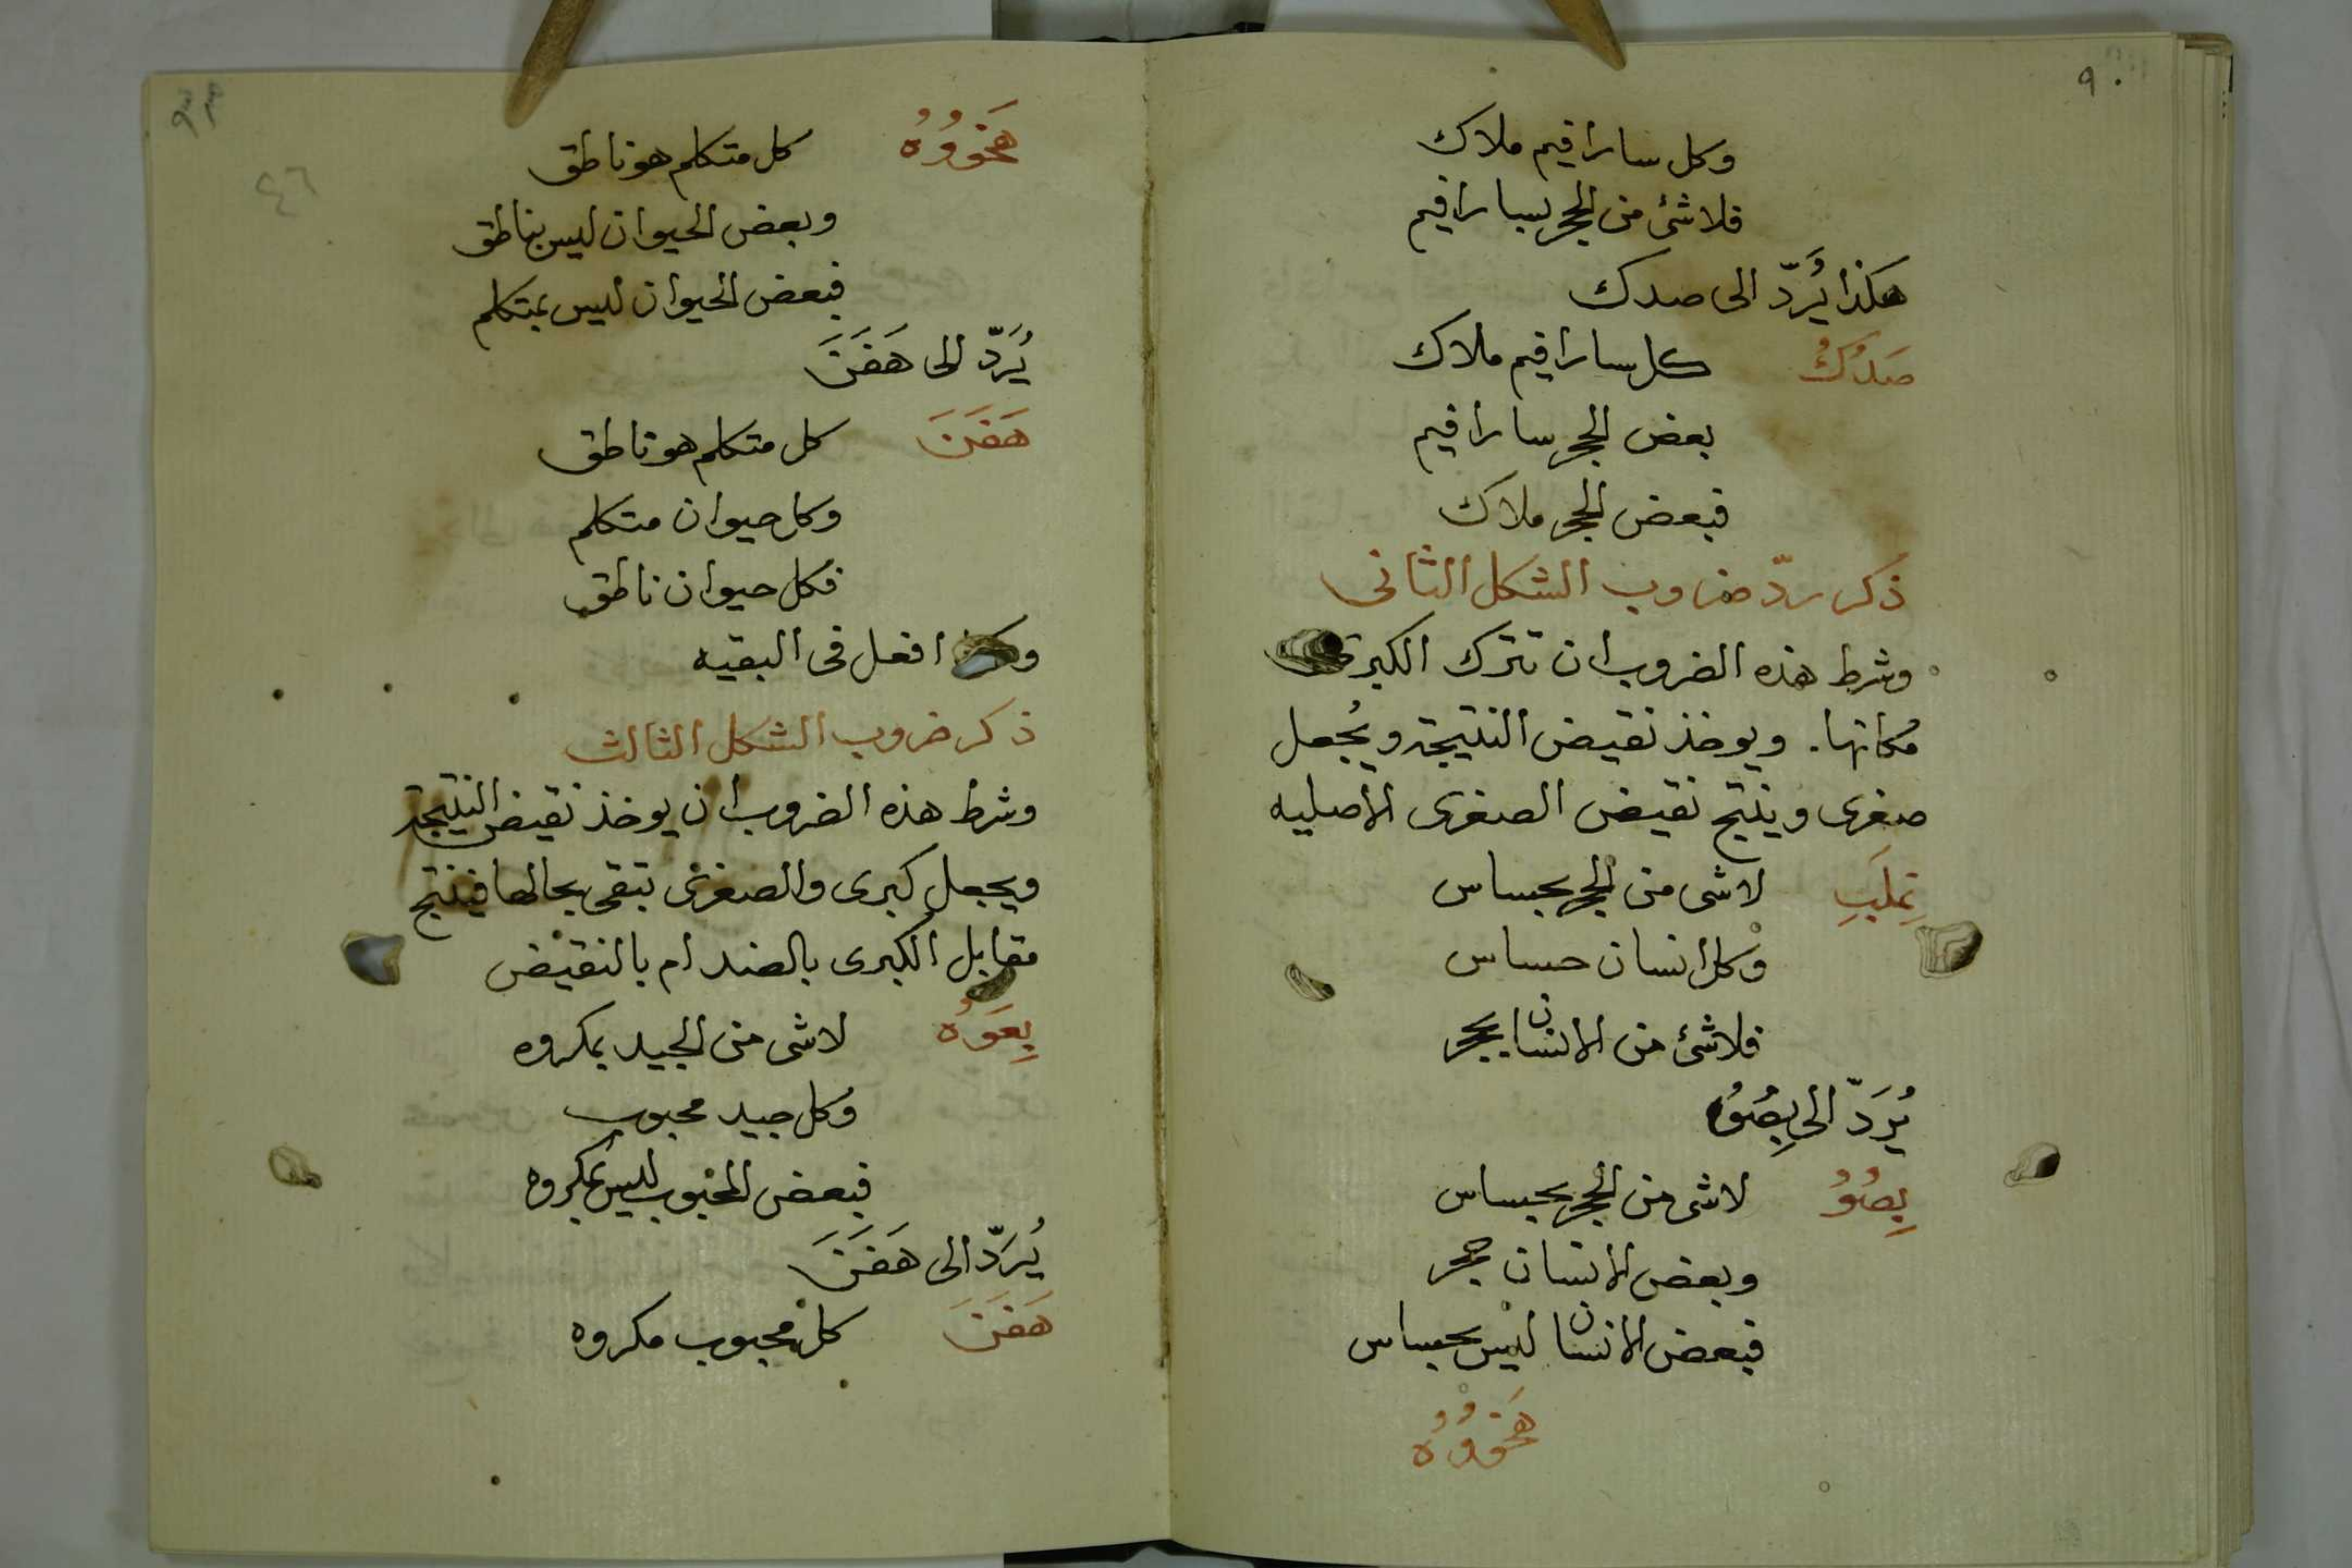 ٩٠
وكل سارافيم ملاك
فلاشئ من الحجر بسارافيم
هكذا يُرَدّ الى صدك
صَدُكُ كل سارافيم ملاك
بعض الحجر سارافيم
فبعض الحجر ملاك
ذكر ردّ ضروب الشكل الثانى
وشرط هذه الضروب ان تترك الكبرى
مكانها. ويوخذ نقيض النتيجة ويُجعل
صغرى وينتج نقيض الصغرى الاصليه
لاشى من الحجر بحساس
وكل انسان حساس
فلاشئ من الانسان بحجر
يُرَدّ الى بِصُوُ
بِصُوُ لاشى من الحجر بحساس
وبعض الانسان حجر
فبعض الانسان ليس بحساس
كل متكلم هو ناطق
وبعض الحيوان ليس بناطق
فبعض الحيوان ليس بمتكلم
يُرَدّ الى هَفَنَ
هَفَنَ كل متكلم هو ناطق
وكل حيوان متكلم
فكل حيوان ناطق
افعل فى البقيه
ذكر ضروب الشكل الثالث
وشرط هذه الضروب ان يوخذ نقيض النتيجة
ويجعل كبرى والصغرى تبقى بحالها فينتج
مقابل الكبرى بالضد ام بالنقيض
بِعَوُه لاشى من الجيد بمكروه
وكل جيد محبوب
فبعض المحبوب ليس بمكروه
يُرَدّ الى هَفَنَ
هَفَنَ كل محبوب مكروه